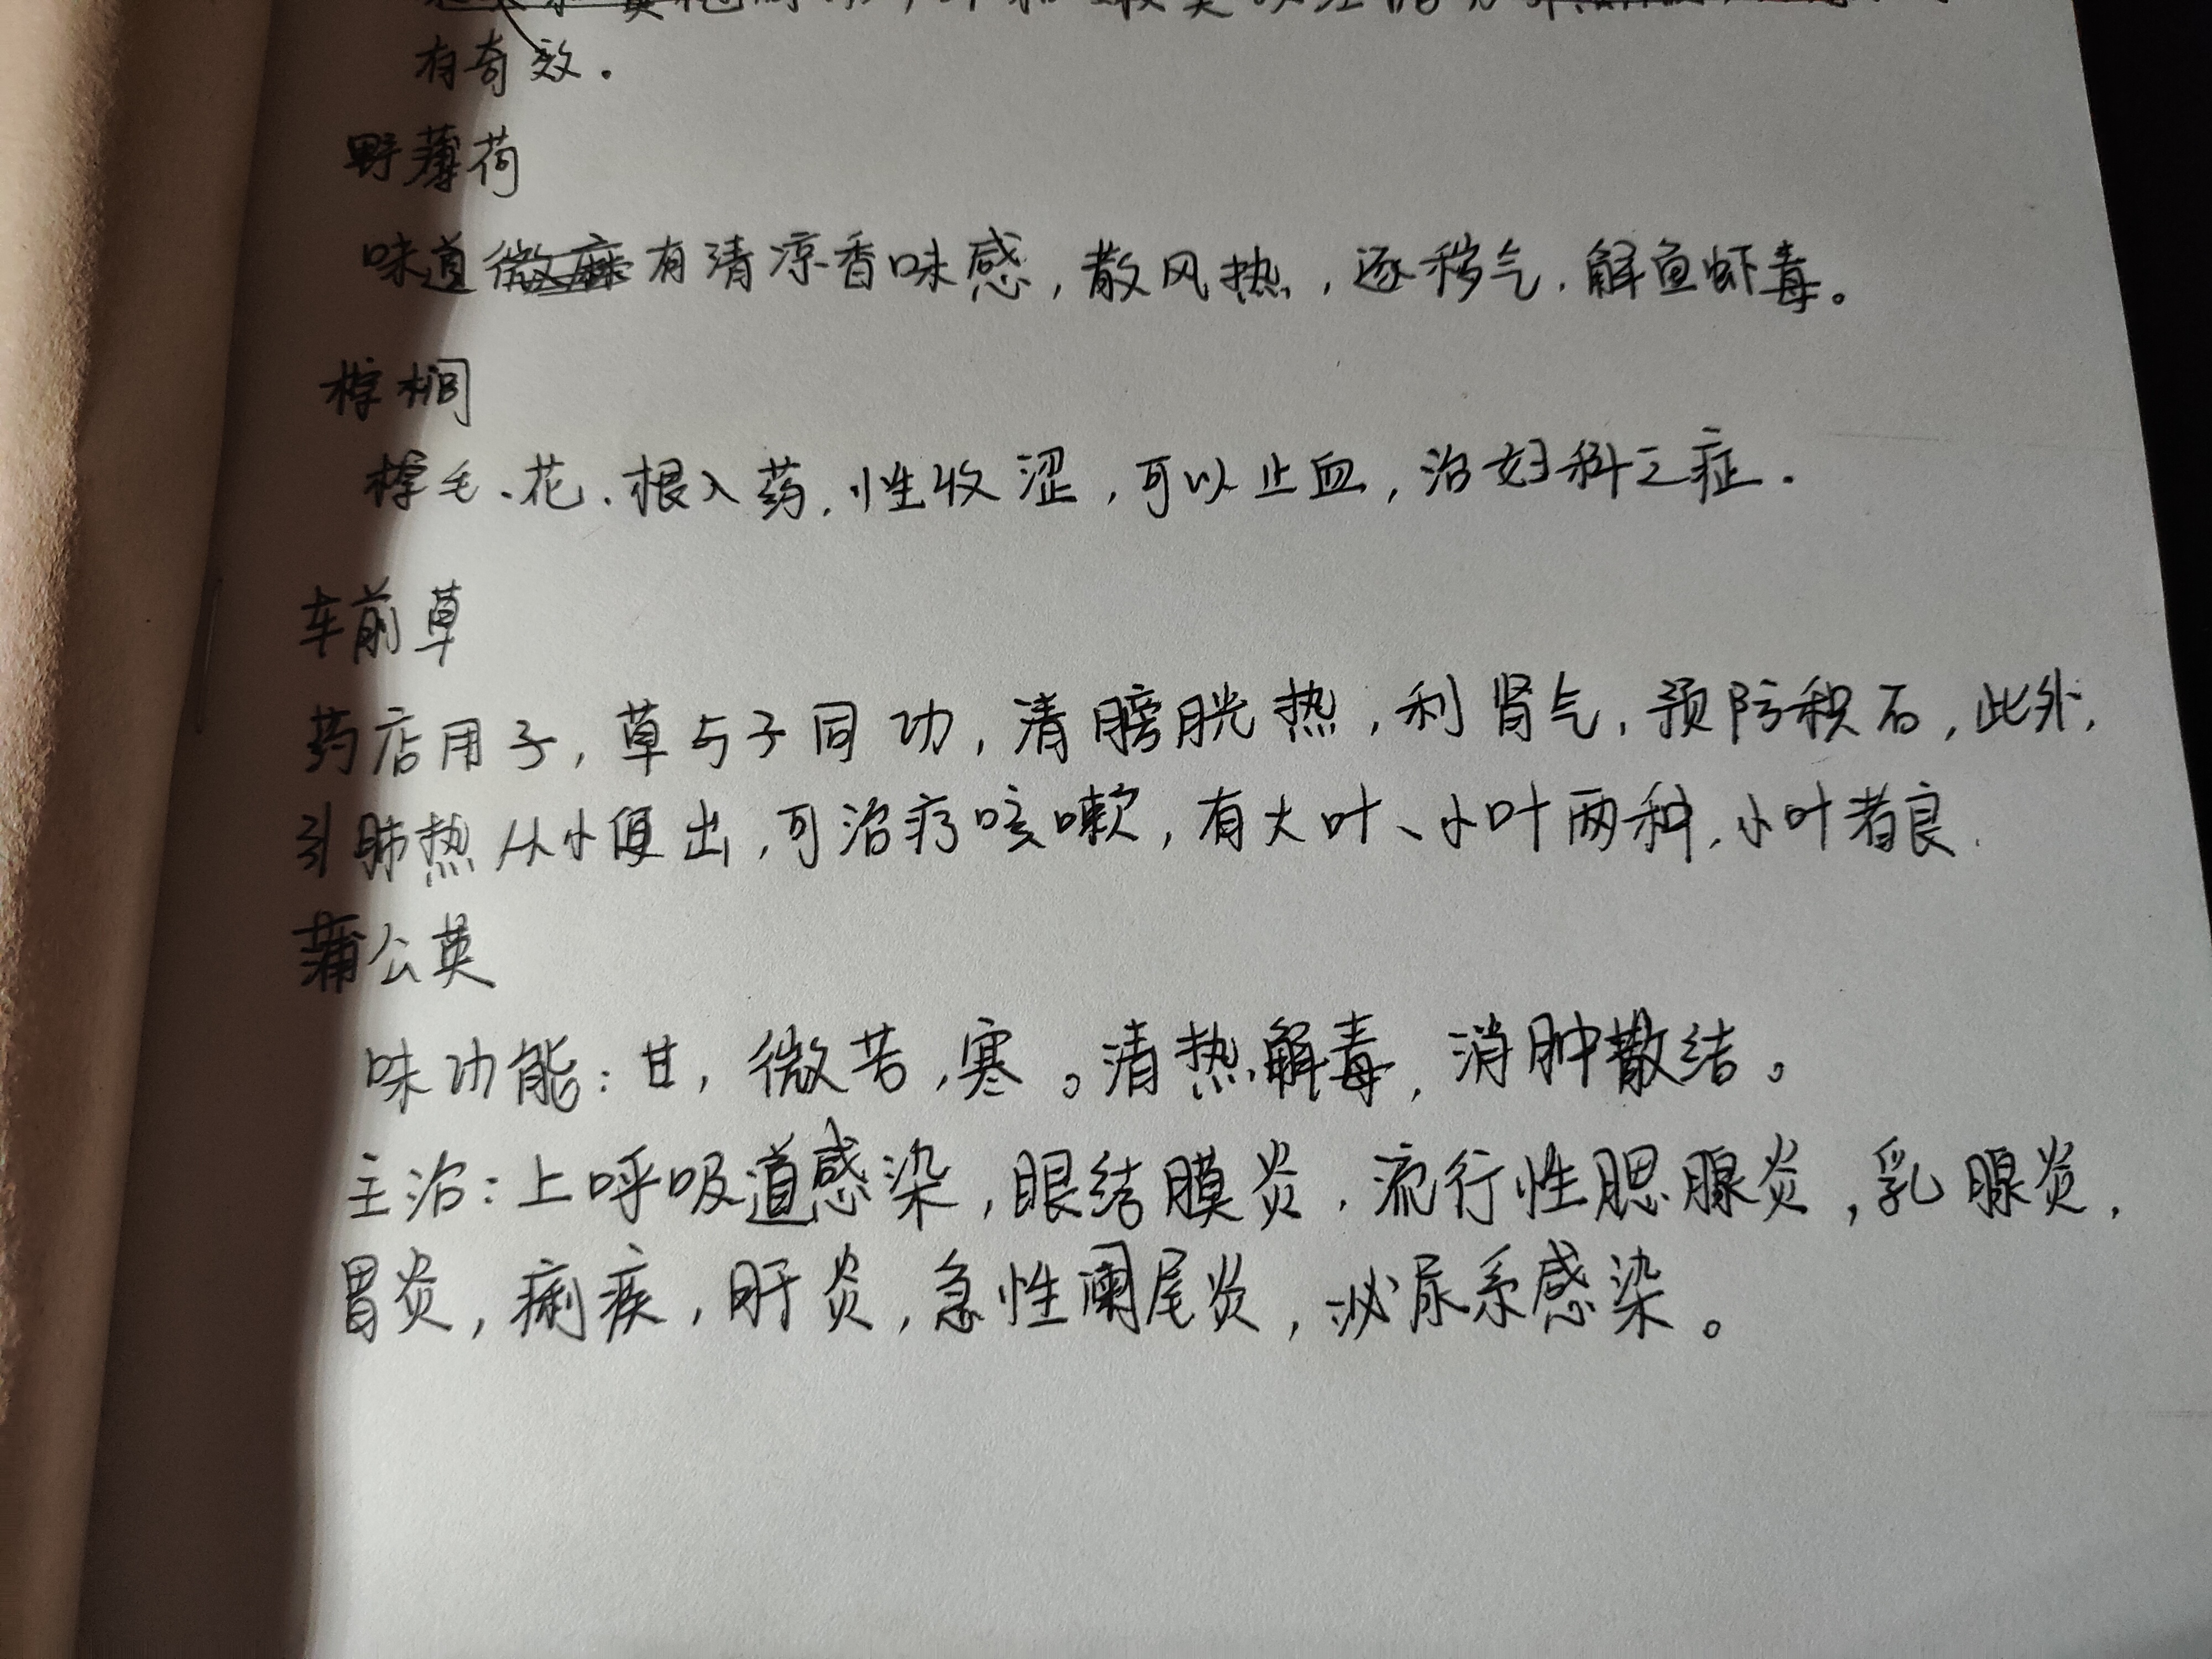 有奇效.
野薄荷
味道有清凉香味感,散风热,逐秽气,解鱼虾毒。
棕榈
棕毛、花、根入药,性收涩,可以止血,治妇科之症.
车前草
药店用子,草与子同功,清膀胱热,利肾气,预防积石,此外,
引肺热从小便出,可治疗咳嗽,有大叶、小叶两种,小叶者良.
蒲公英
味功能:甘,微苦,寒。清热解毒,消肿散结。
主治:上呼吸道感染,眼结膜炎,流行性腮腺炎,乳腺炎,
胃炎,痢疾,肝炎,急性阑尾炎,泌尿系感染。